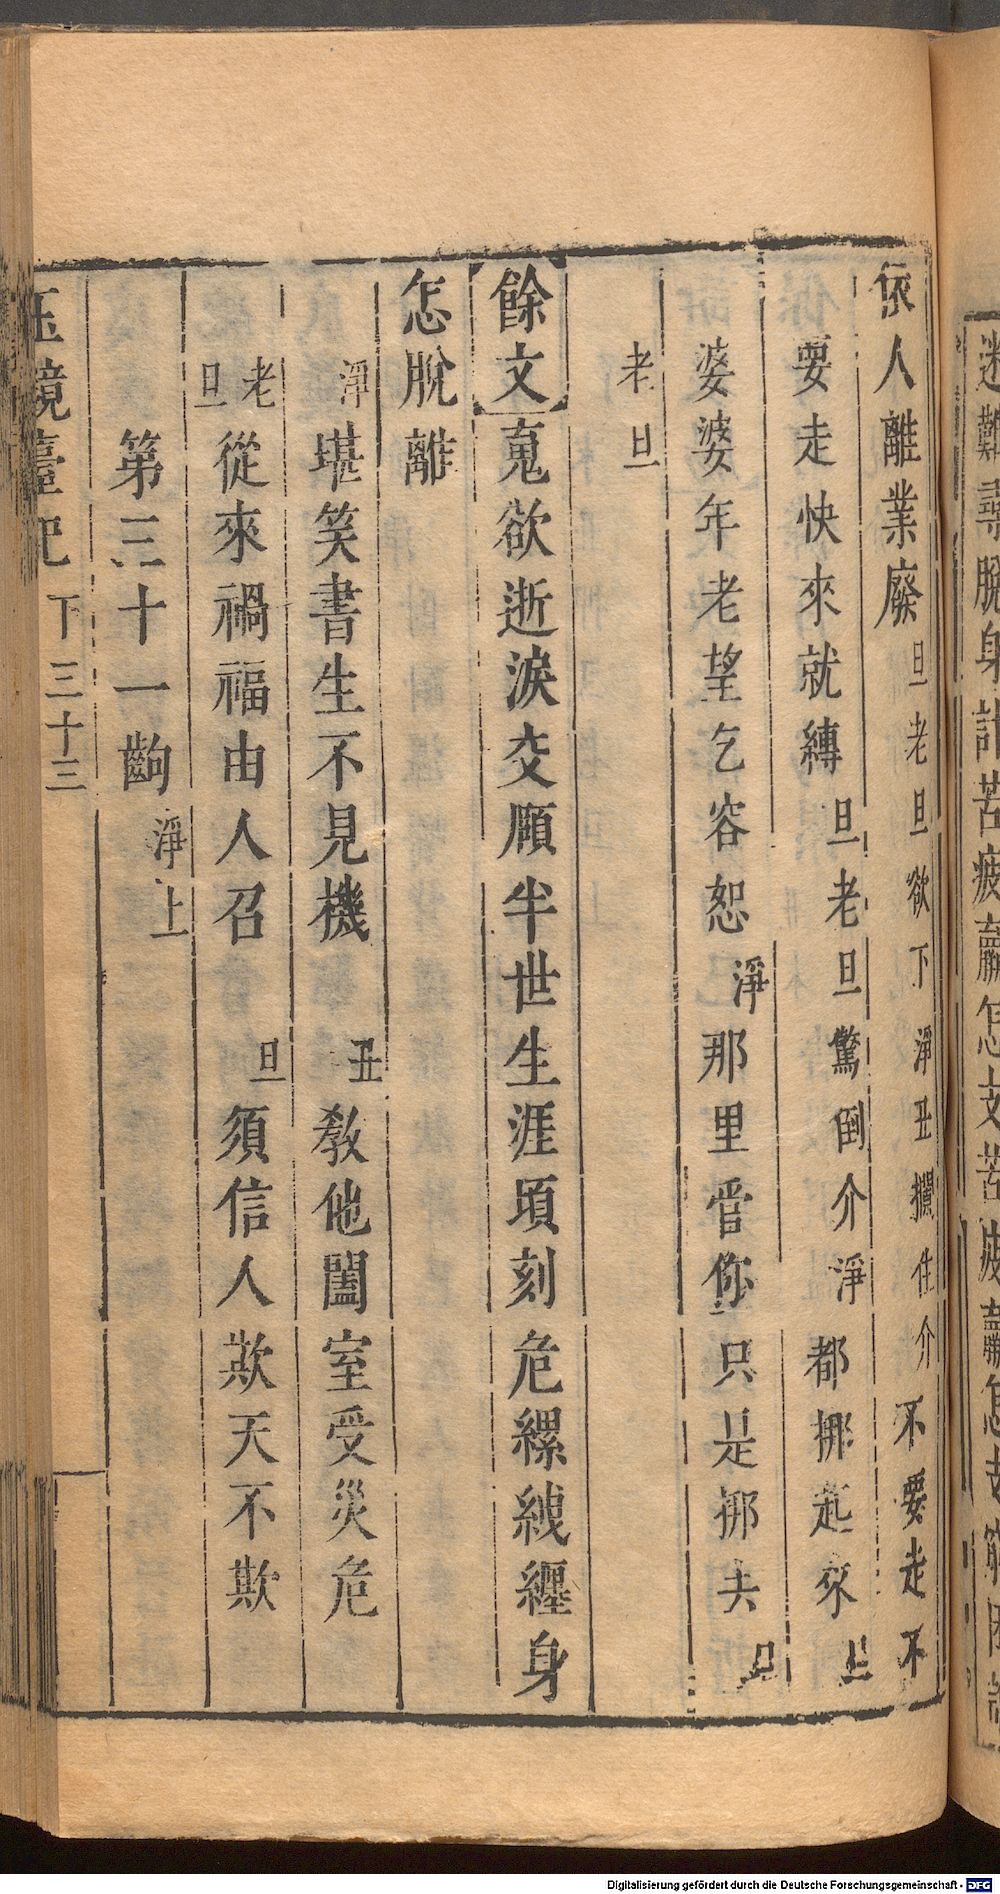 迷難尋脫身計苦疲羸怎支苦疲羸怎支
依人離業廢旦老旦欲下淨丑攔住介不要走不
要走快來就縛旦老旦驚倒介淨都挪起來
婆婆年老望乞容恕淨那里管你只是挪去旦
老旦
餘文䰟欲逝淚交頤半世生涯頃刻危縲絏纏身
怎脫離
淨堪笑書生不見機丑教他闔室受災危
老旦從來禍福由人召旦須信人欺天不欺
第三十一齣淨上
玉鏡臺記下三十三
Digitalisierung gefördert durch die Deutsche Forschungsgemeinschaft - DFG